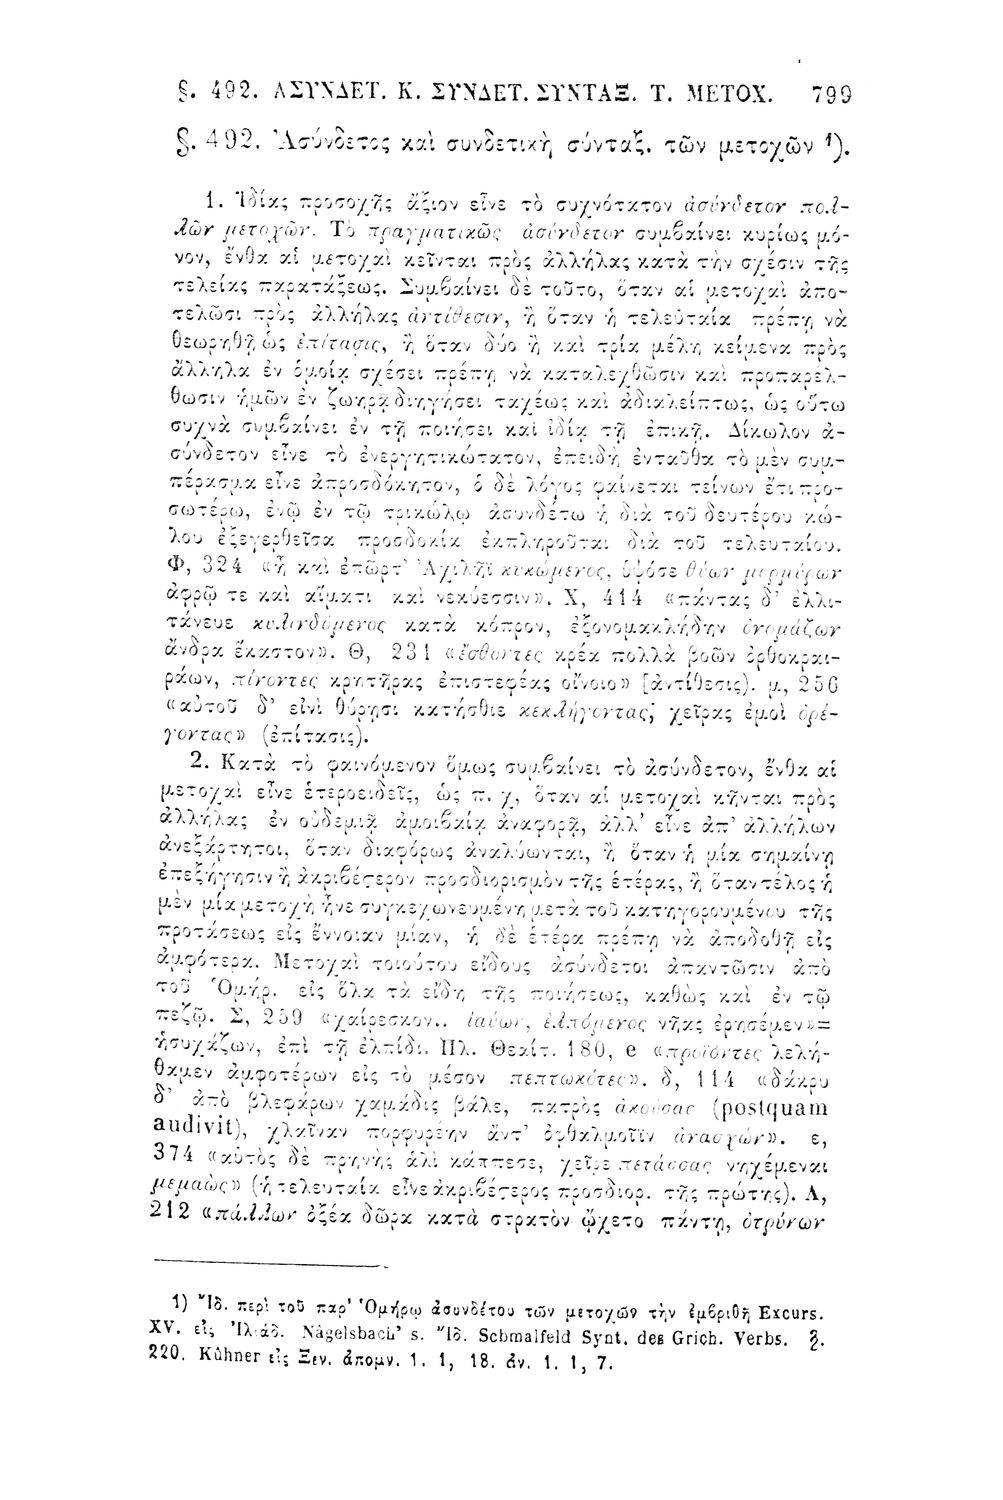 §. 492. ΑΣΥΝΔΕΤ. Κ. ΣΥΝΔΕΤ. ΣΥΝΤΑΞ. Τ. ΜΕΤΟΧ. 799
§. 492. Ἀσύνδετος καὶ συνδετικὴ σύνταξ. τῶν μετοχῶν ¹).
1. Ἰδίας προσοχῆς ἄξιον εἶνε τὸ συχνότατον ἀσύνδετον πολ-
λῶν μετοχῶν. Τὸ πραγματικῶς ἀσύνδετον συμβαίνει κυρίως μό-
νον, ἔνθα αἱ μετοχαὶ κεῖνται πρὸς ἀλλήλας κατὰ τὴν σχέσιν τῆς
τελείας παρατάξεως. Συμβαίνει δὲ τοῦτο, ὅταν αἱ μετοχαὶ ἀπο-
τελῶσι πρὸς ἀλλήλας ἀντίθεσιν, ἢ ὅταν ἡ τελευταία πρέπῃ νὰ
θεωρηθῇ ὡς ἐπίτασις, ἢ ὅταν δύο ἢ καὶ τρία μέλη κείμενα πρὸς
ἄλληλα ἐν ὁμοίᾳ σχέσει πρέπῃ νὰ καταλεχθῶσιν καὶ προπαρέλ-
θωσιν ἡμῶν ἐν ζωηρᾷ διηγήσει ταχέως καὶ ἀδιαλείπτως, ὡς οὕτω
συχνὰ συμβαίνει ἐν τῇ ποιήσει καὶ ἰδίᾳ τῇ ἐπικῇ. Δίκωλον ἀ-
σύνδετον εἶνε τὸ ἐνεργητικώτατον, ἐπειδὴ ἐνταῦθα τὸ μὲν συμ-
πέρασμα εἶνε ἀπροσδόκητον, ὁ δὲ λόγος φαίνεται τείνων ἔτι προ-
σωτέρω, ἐνῷ ἐν τῷ τρικώλῳ ἀσυνδέτω ἡ διὰ τοῦ δευτέρου κώ-
λου ἐξεγερθεῖσα προσδοκία ἐκπληροῦται διὰ τοῦ τελευταίου.
Φ, 324 «ἦ καὶ ἐπῶρτ' Ἀχιλῆϊ κυκώμενος, ὑψόσε θύων μορμύρων
ἀφρῷ τε καὶ αἵματι καὶ νεκύεσσιν». Χ, 414 «πάντας δ' ἐλλι-
τάνευε κυλινδόμενος κατὰ κόπρον, ἐξονομακλήδην ὀνομάζων
ἄνδρα ἕκαστον». Θ, 231 «ἔσθοντες κρέα πολλὰ βοῶν ὀρθοκραι-
ράων, πίνοντες κρητῆρας ἐπιστεφέας οἴνοιο» [ἀντίθεσις). μ, 256
«αὐτοῦ δ' εἰνὶ θύρῃσι κατήσθιε κεκλήγοντας, χεῖρας ἐμοὶ ὀρέ-
γοντας» (ἐπίτασις).
2. Κατὰ τὸ φαινόμενον ὅμως συμβαίνει τὸ ἀσύνδετον, ἔνθα αἱ
μετοχαὶ εἶνε ἑτεροειδεῖς, ὡς π. χ, ὅταν αἱ μετοχαὶ κῆνται πρὸς
ἀλλήλας ἐν οὐδεμιᾷ ἀμοιβαίᾳ ἀναφορᾷ, ἀλλ' εἶνε ἀπ' ἀλλήλων
ἀνεξάρτητοι, ὅταν διαφόρως ἀναλύωνται, ἢ ὅταν ἡ μία σημαίνῃ
ἐπεξήγησιν ἢ ἀκριβέστερον προσδιορισμὸν τῆς ἑτέρας, ἢ ὅταν τέλος ἡ
μὲν μία μετοχὴ ἦνε συγκεχωνευμένη μετὰ τοῦ κατηγορουμένου τῆς
προτάσεως εἰς ἔννοιαν μίαν, ἡ δὲ ἑτέρα πρέπῃ νὰ ἀποδοθῇ εἰς
ἀμφότερα. Μετοχαὶ τοιούτου εἴδους ἀσύνδετοι ἀπαντῶσιν ἀπὸ
τοῦ Ὁμήρ. εἰς ὅλα τὰ εἴδη τῆς ποιήσεως, καθὼς καὶ ἐν τῷ
πεζῷ. Σ, 259 «χαίρεσκον.. ἰαύων, ἐλπόμενος νῆας ἐρησέμεν»=
ἡσυχάζων, ἐπὶ τῇ ἐλπίδι. Πλ. Θεαίτ. 180, e «προϊόντες λελή-
θαμεν ἀμφοτέρων εἰς τὸ μέσον πεπτωκότες». δ, 114 «δάκρυ
δ' ἀπὸ βλεφάρων χαμάδις βάλε, πατρὸς ἀκούσας (postquam
audivit), χλαῖναν πορφυρέην ἄντ' ὀφθαλμοῖϊν ἀνασχών». ε,
374 «αὐτὸς δὲ πρηνὴς ἁλὶ κάππεσε, χεῖρε πετάσσας νηχέμεναι
μεμαὼς» (ἡ τελευταία εἶνε ἀκριβέστερος προσδιορ. τῆς πρώτης). Λ,
212 «πάλλων ὀξέα δῶρα κατὰ στρατὸν ᾤχετο πάντη, ὀτρύνων
1) Ἴδ. περὶ τοῦ παρ' Ὁμήρῳ ἀσυνδέτου τῶν μετοχῶν τὴν ἐμβριθῆ Excurs.
XV. εἰς Ἰλιάδ. Nägelsbach' s. Ἴδ. Schmalfeld Synt. des Grich. Verbs. §.
220. Kühner εἰς Ξεν. ἀπομν. 1. 1, 18. ἀν. 1. 1, 7.